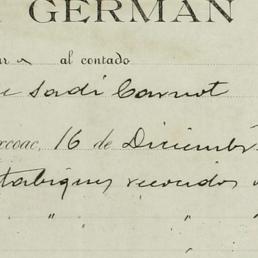 GERMAN
al contado
Sadi Carnot
xcoac, 16 de Diciembr
tabiques recocidos
" " "
"